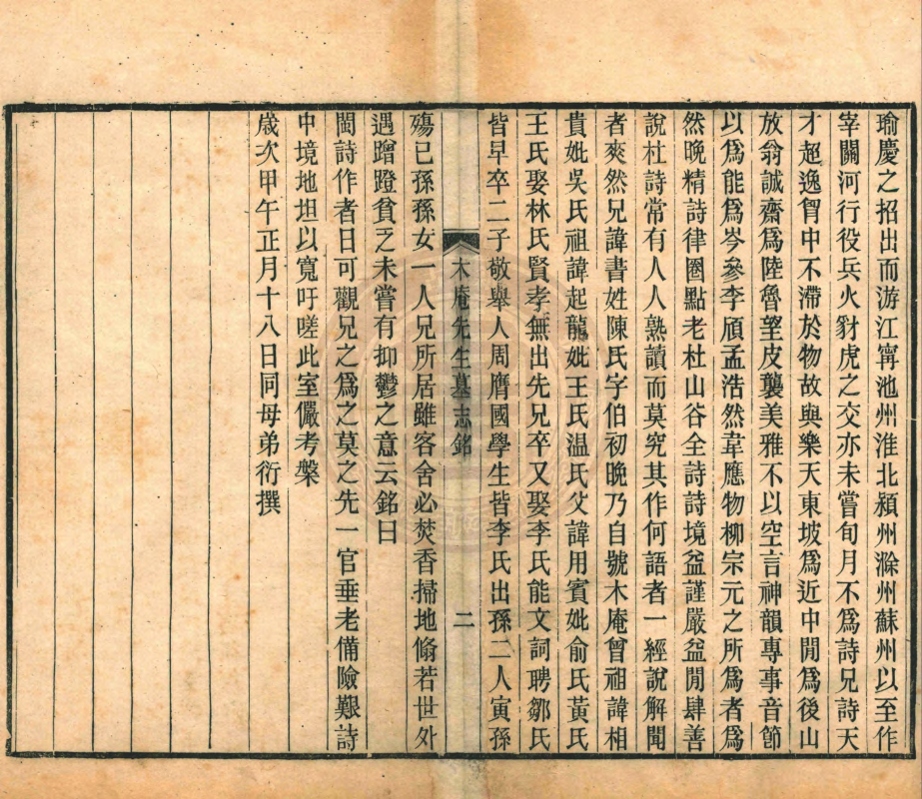 瑜慶之招出而游江寧池州淮北潁州滁州蘇州以至作
宰關河行役兵火豺虎之交亦未嘗旬月不爲詩兄詩天
才超逸胷中不滯於物故與樂天東坡爲近中閒爲後山
放翁誠齋爲陸魯望皮襲美雅不以空言神韻專事音節
以爲能爲岑參李頎孟浩然韋應物柳宗元之所爲者爲
然晚精詩律圈點老杜山谷全詩詩境益謹嚴益閒肆善
說杜詩常有人人熟讀而莫究其作何語者一經說解聞
者爽然兄諱書姓陳氏字伯初晚乃自號木庵曾祖諱相
貴妣吳氏祖諱起龍妣王氏温氏父諱用賓妣俞氏黃氏
王氏娶林氏賢孝無出先兄卒又娶李氏能文詞聘鄒氏
皆早卒二子敬舉人周膺國學生皆李氏出孫二人寅孫
木庵先生墓志銘
二
殤已孫孫女一人兄所居雖客舍必焚香掃地翛若世外
遇蹭蹬貧乏未嘗有抑鬱之意云銘曰
閩詩作者日可觀兄之爲之莫之先一官垂老備險艱詩
中境地坦以寬吁嗟此室儼考槃
歲次甲午正月十八日同母弟衍撰